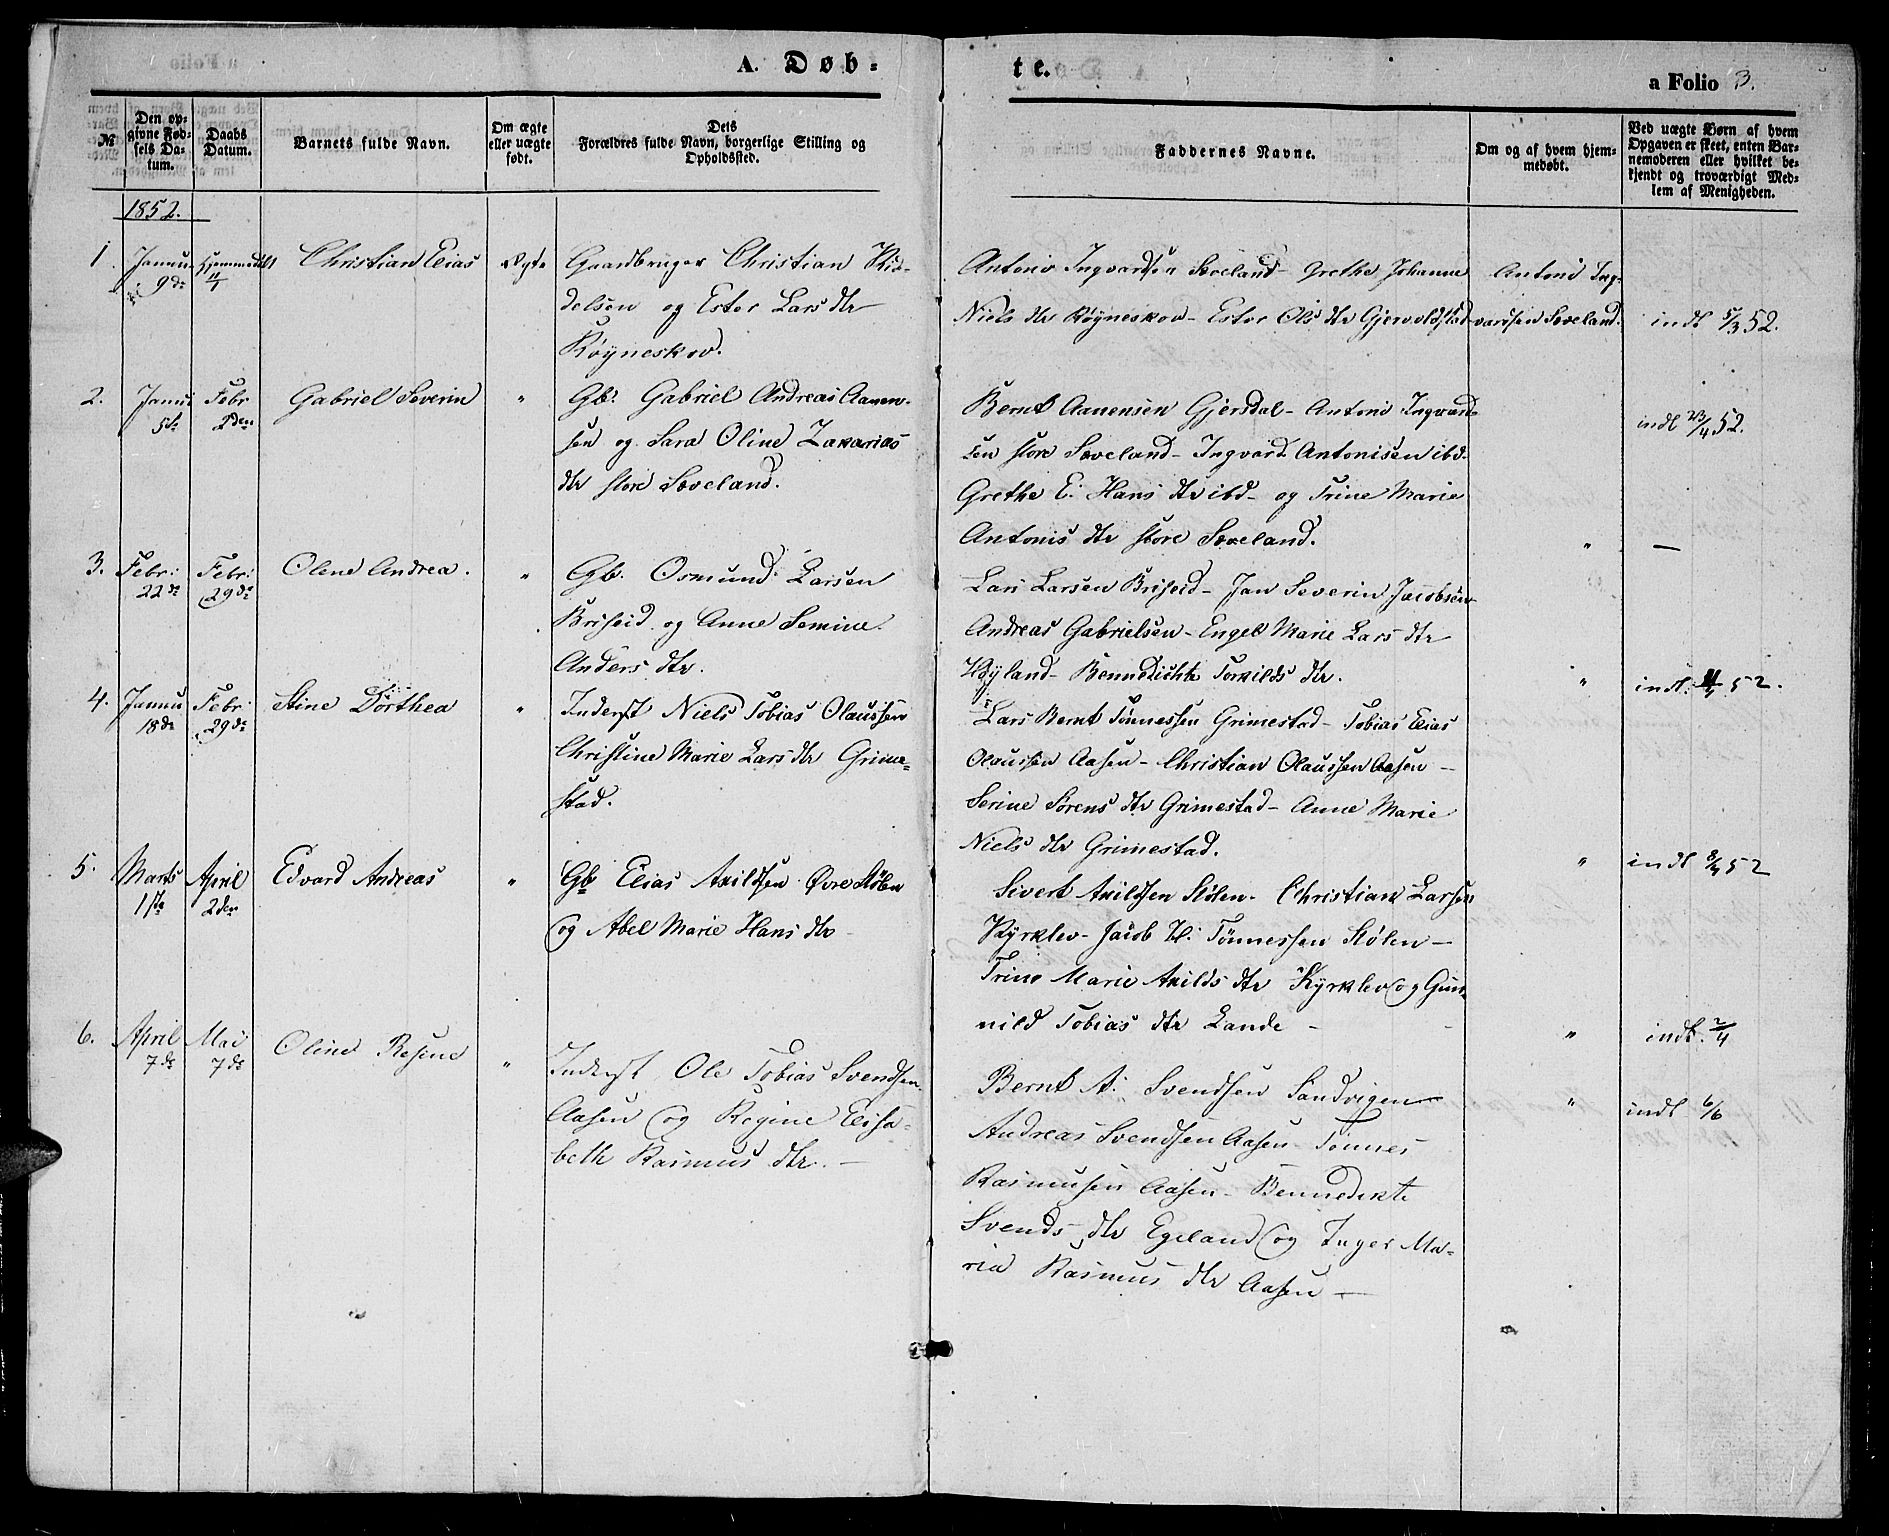 A. Døb-
te.
a Folio 3.
№
Den op-
givne Fød-
sels Da-
tum.
Daabs
Datum.
Barnets fulde Navn.
Om ægte
eller uægte
født.
Dets
Forældres fulde Navn, borgerlige Stilling og
Opholdssted.
Faddernes Navne.
Om og af hvem hjem-
medøbt.
Ved uægte Børn af hvem
Opgaven er skeet, enten Bar-
nemoderen eller hvilket be-
kjendt og troværdigt Med-
lem af Menigheden.
1852.
1.
Janua
9de
Hjemmedøbt
11/1
Christian Elias
Ægte
Gaardbruger Christian
delsen og Ester Lars dtr
Røyneskov.
Antoni Ingvardsen Soveland - Grethe Johanne
Niels dtr Røyneskov - Ester Ols dtr Gjervoldstad
Antoni Ing-
vardsen Soveland.
indt 5/3 52.
2.
Janua
5te
Febr
2den
Gabriel Severin
"
Gb: Gabriel Andreas Aanen-
sen og Sara Oline Zakarias
dtr store Soveland.
Bernt Aanensen Gjersdal - Antoni Ingvard-
sen store Soveland - Ingvard Antonisen ibd -
Grethe E. Hans dtr ibd - og Trine Marie
Antonis dtr store Soveland.
indt 23/4 52.
" —
3.
Febr:
22de
Febr:
29de
Olene Andrea.
"
Gb. Osmund Larsen
Briseid og Anne Semine
Anders dtr.
Lars Larsen Briseid - Jan Severin Jacobsen
Andreas Gabrielsen - Engel Marie Lars dtr
Høyland - Bennedichte Torkilds dtr.
"
indt. 52.
4.
Janua
18de
Febr:
29de
Stine Dorthea
"
Inderst Niels Tobias Olaussen
Christine Marie Lars dtr Grime-
stad.
Lars Bernt Tønnessen Grimestad - Tobias Elias
Olaussen Aasen - Christian Olaussen Aasen -
Serine Sørens dtr Grimestad - Anne Marie
Niels dtr Grimestad.
"
indt 52
5.
Marts
1ste
April
2den
Edvard Andreas
"
Gb Elias Axildsen Øvre Stølen
og Abel Marie Hans dtr
Sivert Axildsen Stølen - Christian Larsen
Kyrklev - Jacob Tønnessen Stølen -
Trine Marie Axilds dtr Kyrklev og Gun-
nild Tobias dtr Lande -
"
indt. 2/4
6.
April
7de
Mai
7de
Oline Resine
"
Inderst Ole Tobias Svendsen
Aasen og Regine Elisa-
beth Rasmus dtr. —
Bernt A: Svendsen Sandvigen
Andreas Svendsen Aasen - Tønnes
Rasmusen Aasen - Bennedikte
Svends dtr Egeland og Inger Ma-
ria Rasmus dtr Aasen —
"
indt 6/6